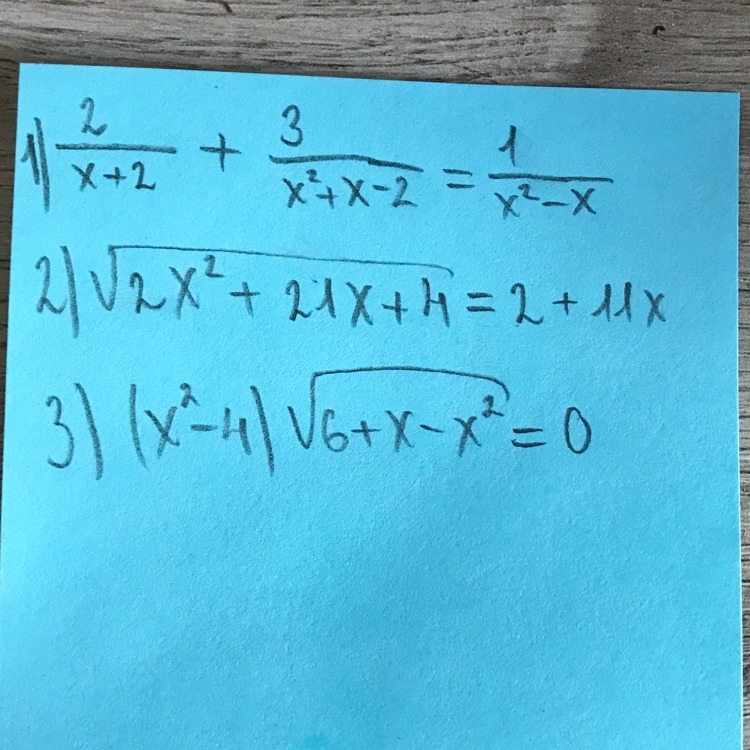 1) 2/(x+2) + 3/(x²+x-2) = 1/(x²-x)
2) √(2x²+21x+4) = 2+11x
3) (x²-4)√(6+x-x²) = 0